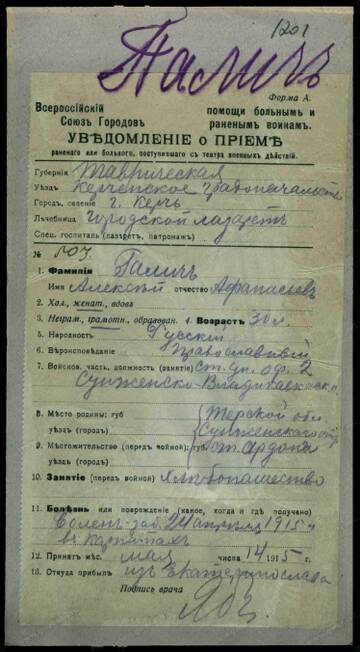 1201
Галичъ
Форма А.
Всероссійскій помощи больнымъ и
Союзъ Городовъ раненымъ воинамъ.
УВѢДОМЛЕНІЕ о ПРІЕМѢ
раненаго или больного, поступившаго съ театра военныхъ дѣйствій.
Губернія Таврическая
Уѣздъ Керченское градоначальств
Городъ, селеніе г. Керчь
Лѣчебница Городской лазаретъ
Спец. госпиталь (лазаретъ, патронажъ)
№ 503
1. Фамилія Галичъ
Имя Алексѣй отчество Афанасьевъ
2. Хол., женат., вдовъ
3. Неграм., грамотн., образован. 4. Возрастъ 30 л.
5. Народность Русскій
6. Вѣроисповѣданіе православный
7. Войсков. часть, должность (занятіе) 2
Сунженско-Владикавказск
8. Мѣсто родины: губ Терской обл.
уѣздъ (городъ) Сунженскаго
9. Мѣстожительство (передъ войной): губ ст. Ардона
уѣздъ (городъ)
10. Занятіе (передъ войной) хлѣбопашество
11. Болѣзнь или поврежденіе (какое, когда и гдѣ получено)
Болен заб. 24 апрѣля 1915 г
въ Карпатахъ
12. Принятъ мѣс. мая числа 14 1915 г.
13. Откуда прибылъ изъ Екатеринослава
Подпись врача